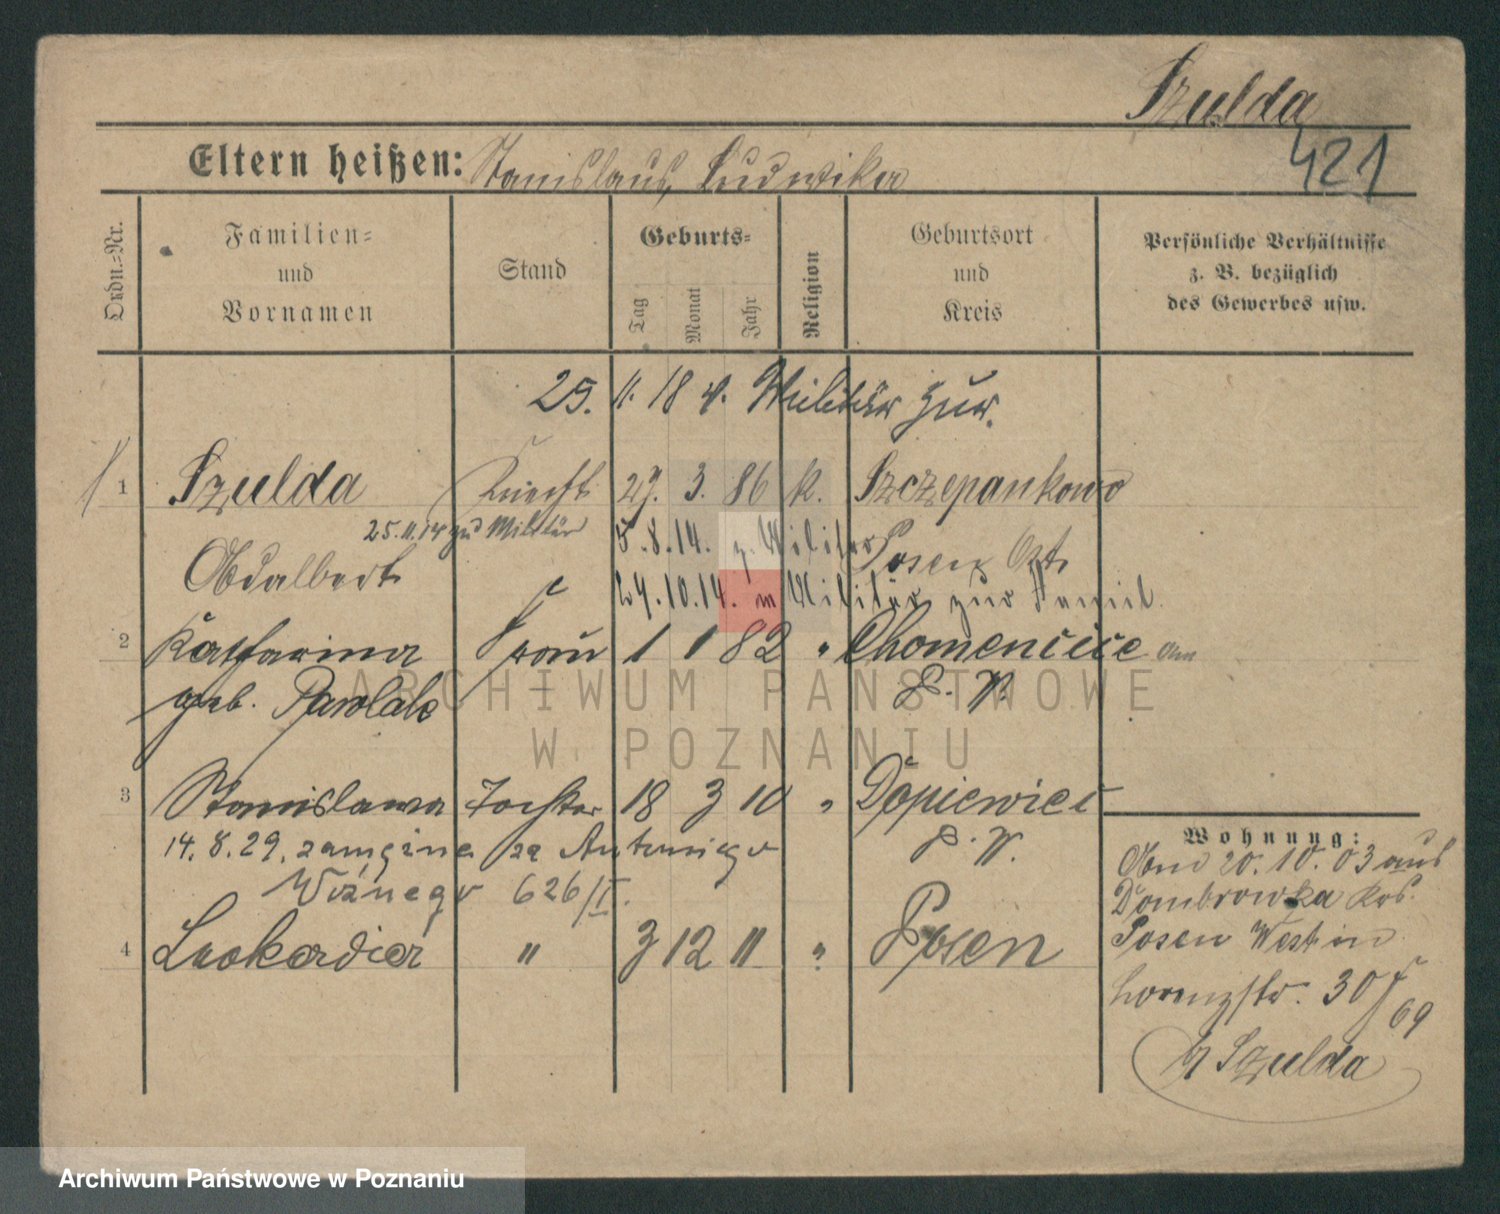 Szulda
421
Eltern heißen: Stanislaus, Ludwika
Ordn.=Nr.
Familien= und Vornamen
Stand
Geburts=
Tag
Monat
Jahr
Religion
Geburtsort und Kreis
Persönliche Verhältnisse
z. B. bezüglich
des Gewerbes usw.
25. 11. 18 v. Militär zur.
1 Szulda Knecht 29. 3. 86 k. Szczepankowo
25.11.14 zu Militär 5.8.14. z. Militär Posen Ost
Adalbert 24.10.14. m Militär zur Famil.
2 Katharina Frau 1 1 82 " Chomencice
geb. Pawlak P. W.
ARCHIWUM PAŃSTWOWE
W POZNANIU
3 Stanislawa Tochter 18 3 10 " Dopiewiec
14.8.29. zamęźna za Antoniego P. W.
Woźnego 626/I.
4 Leokadia " 3 12 11 " Posen
Wohnung:
20. 10. 03 aus
Dombrowka Krs.
Posen West in
Lorenzstr. 30
69
Szulda
Archiwum Państwowe w Poznaniu